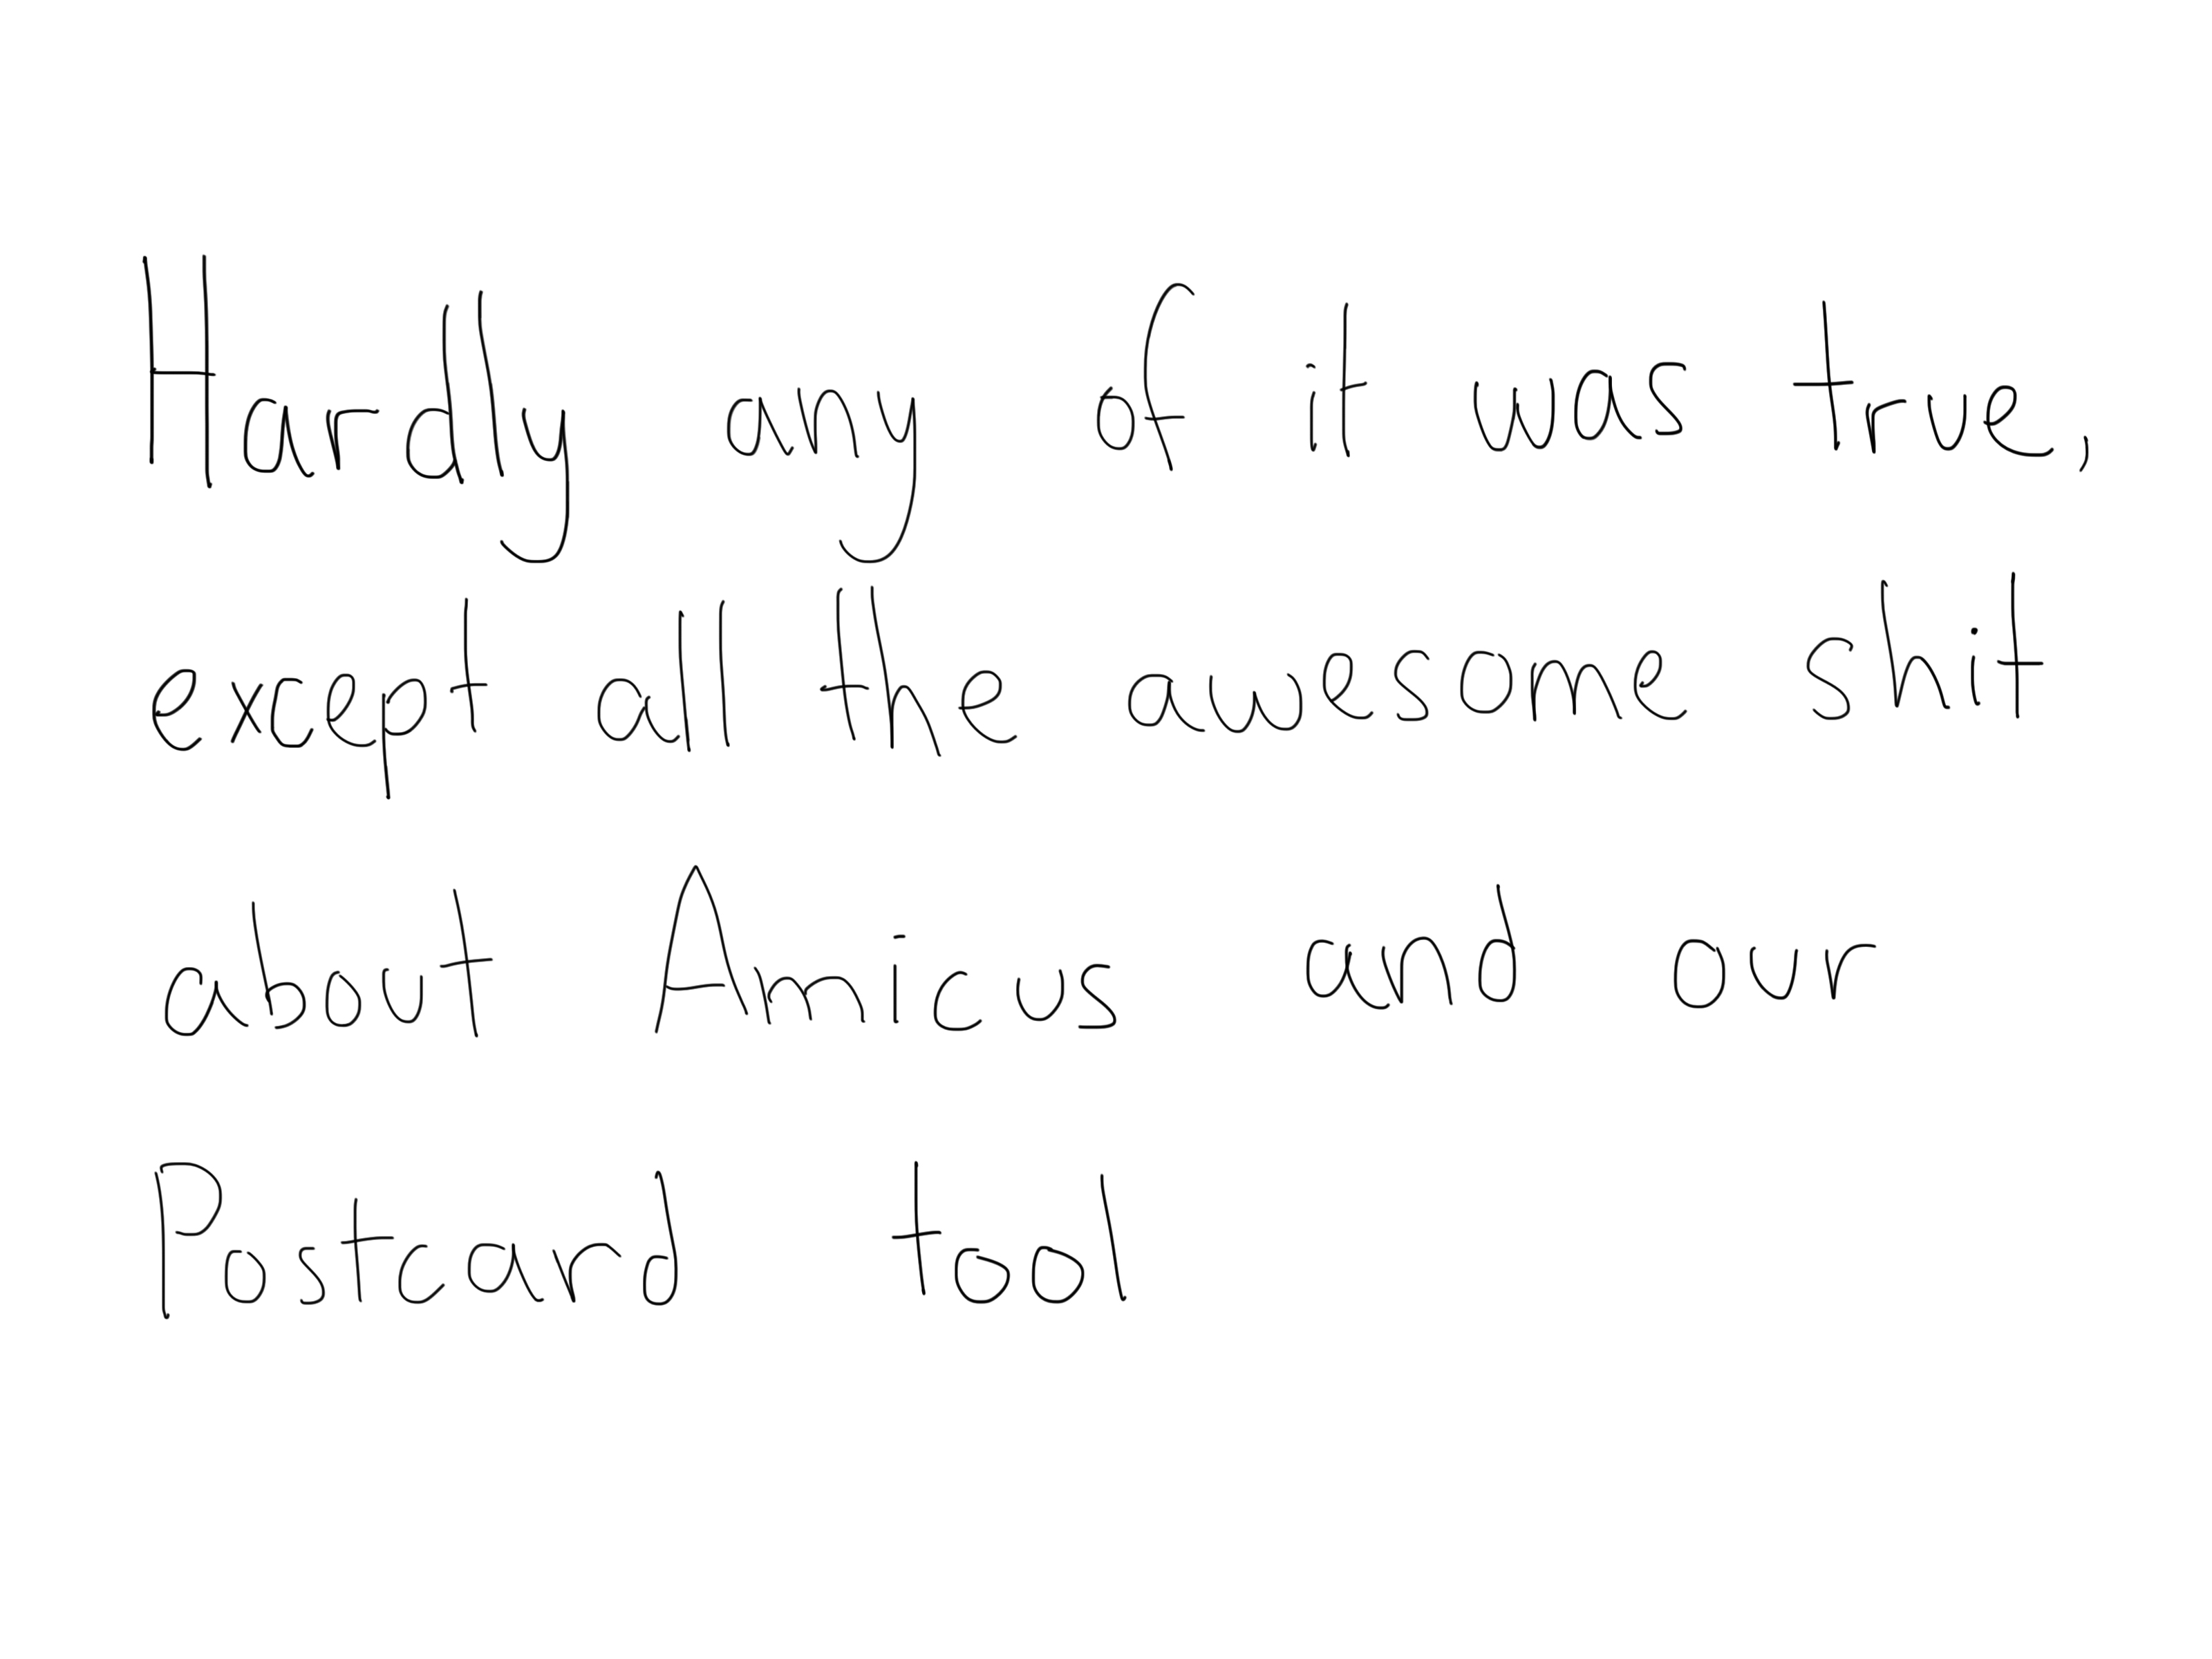 Hardly any of it was true,
except all the awesome shit
about Amicus and our
Postcard tool